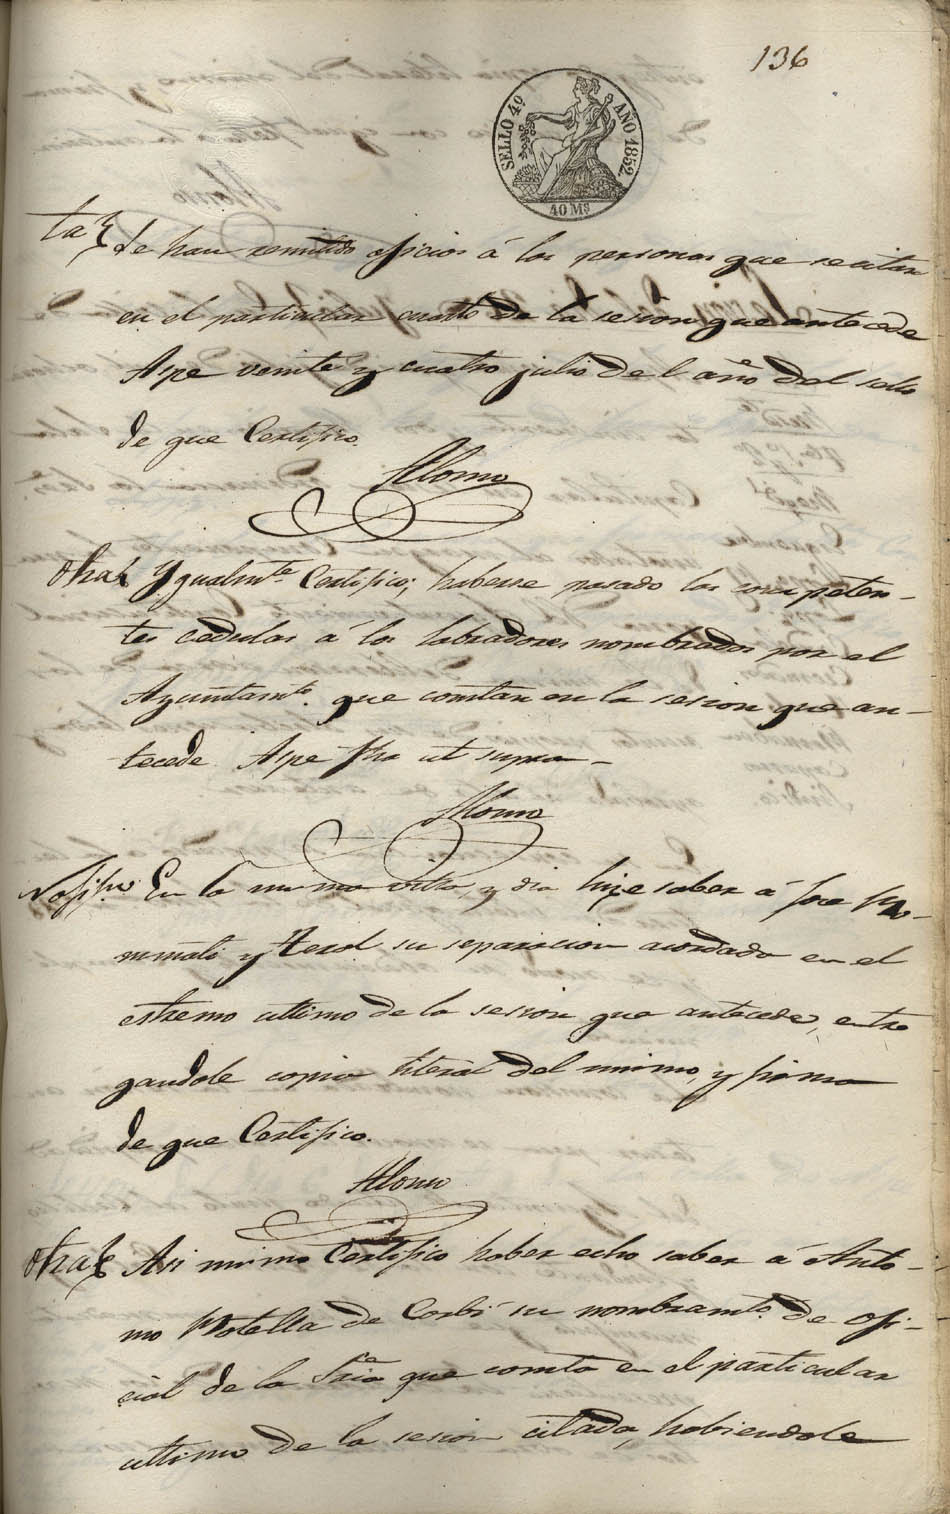 136
SELLO 4º AÑO 1852.
40 Ms
Se han remitido oficios á las personas que se citan
en el particular cuarto de la sesion que antecede
Aspe veinte y cuatro julio del año del sello
de que Certifico.
Alonso
Otra Ygualmte. Certifico; haberse pasado las competen-
tes cedulas á los labradores nombrados por el
Ayuntamto. que constan en la sesion que an-
tecede. Aspe fha ut supra
Alonso
En la misma villa y dia hize saber á Jose
y Terol su separacion acordada en el
estremo ultimo de la sesion que antecede, entre
gandole copia literal del mismo, y firma
de que Certifico.
Alonso
Otra Asi mismo Certifico haber echo saber á Anto-
nio Botella de Corbí su nombramto. de ofi-
cial de la Sria que consta en el particular
ultimo de la sesion citada, habiendole